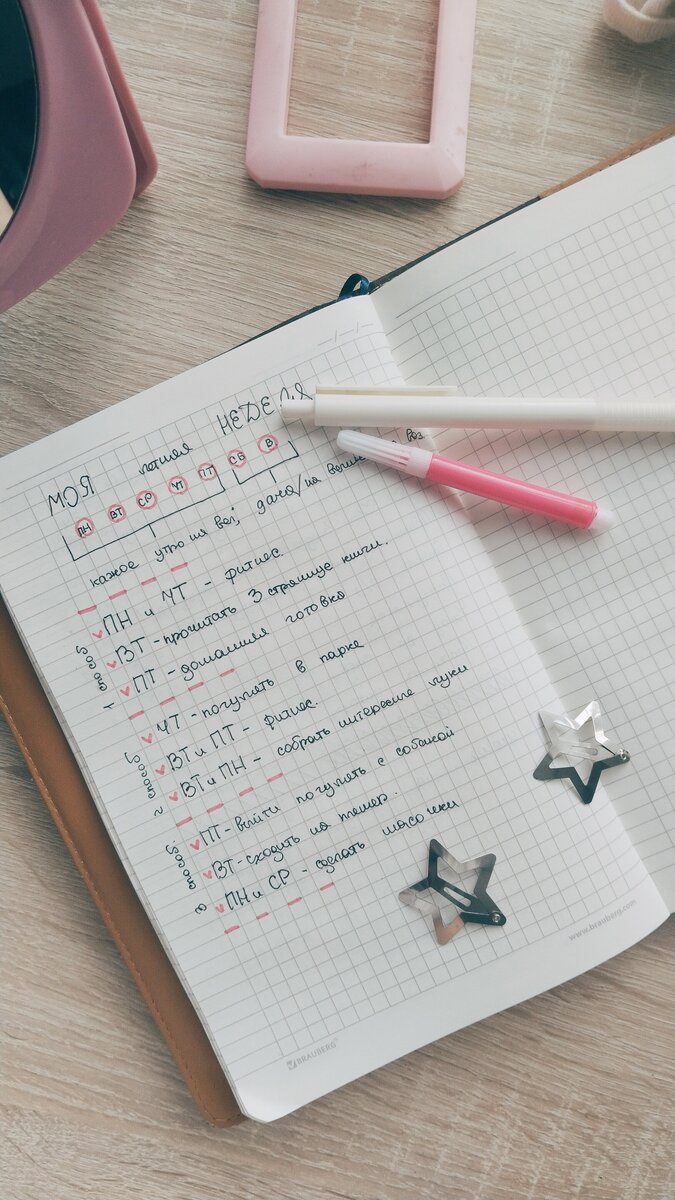 МОЯ летняя НЕДЕЛЯ
ПН ВТ СР ЧТ ПТ СБ В
кажое утро
ПН и ЧТ - фитнес.
ВТ - прочитать 3 страницы книги.
ПТ - домашняя готовка
1 способ
ЧТ - погулять в парке
ВТ и ПТ - фитнес.
ВТ и ПН - собрать интересные пуки
2 способ
ПТ - выйти погулять с собакой
ВТ - сходить на
ПН и СР - сделать масочки
3 способ
BRAUBERG
www.brauberg.com